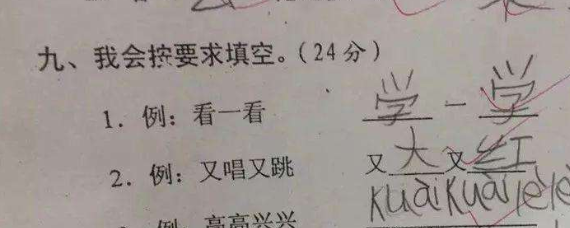 九、我会按要求填空。(24分)
1. 例：看一看 学一学
2. 例：又唱又跳 又大又红
例 高高兴兴 kuàikuàilèlè